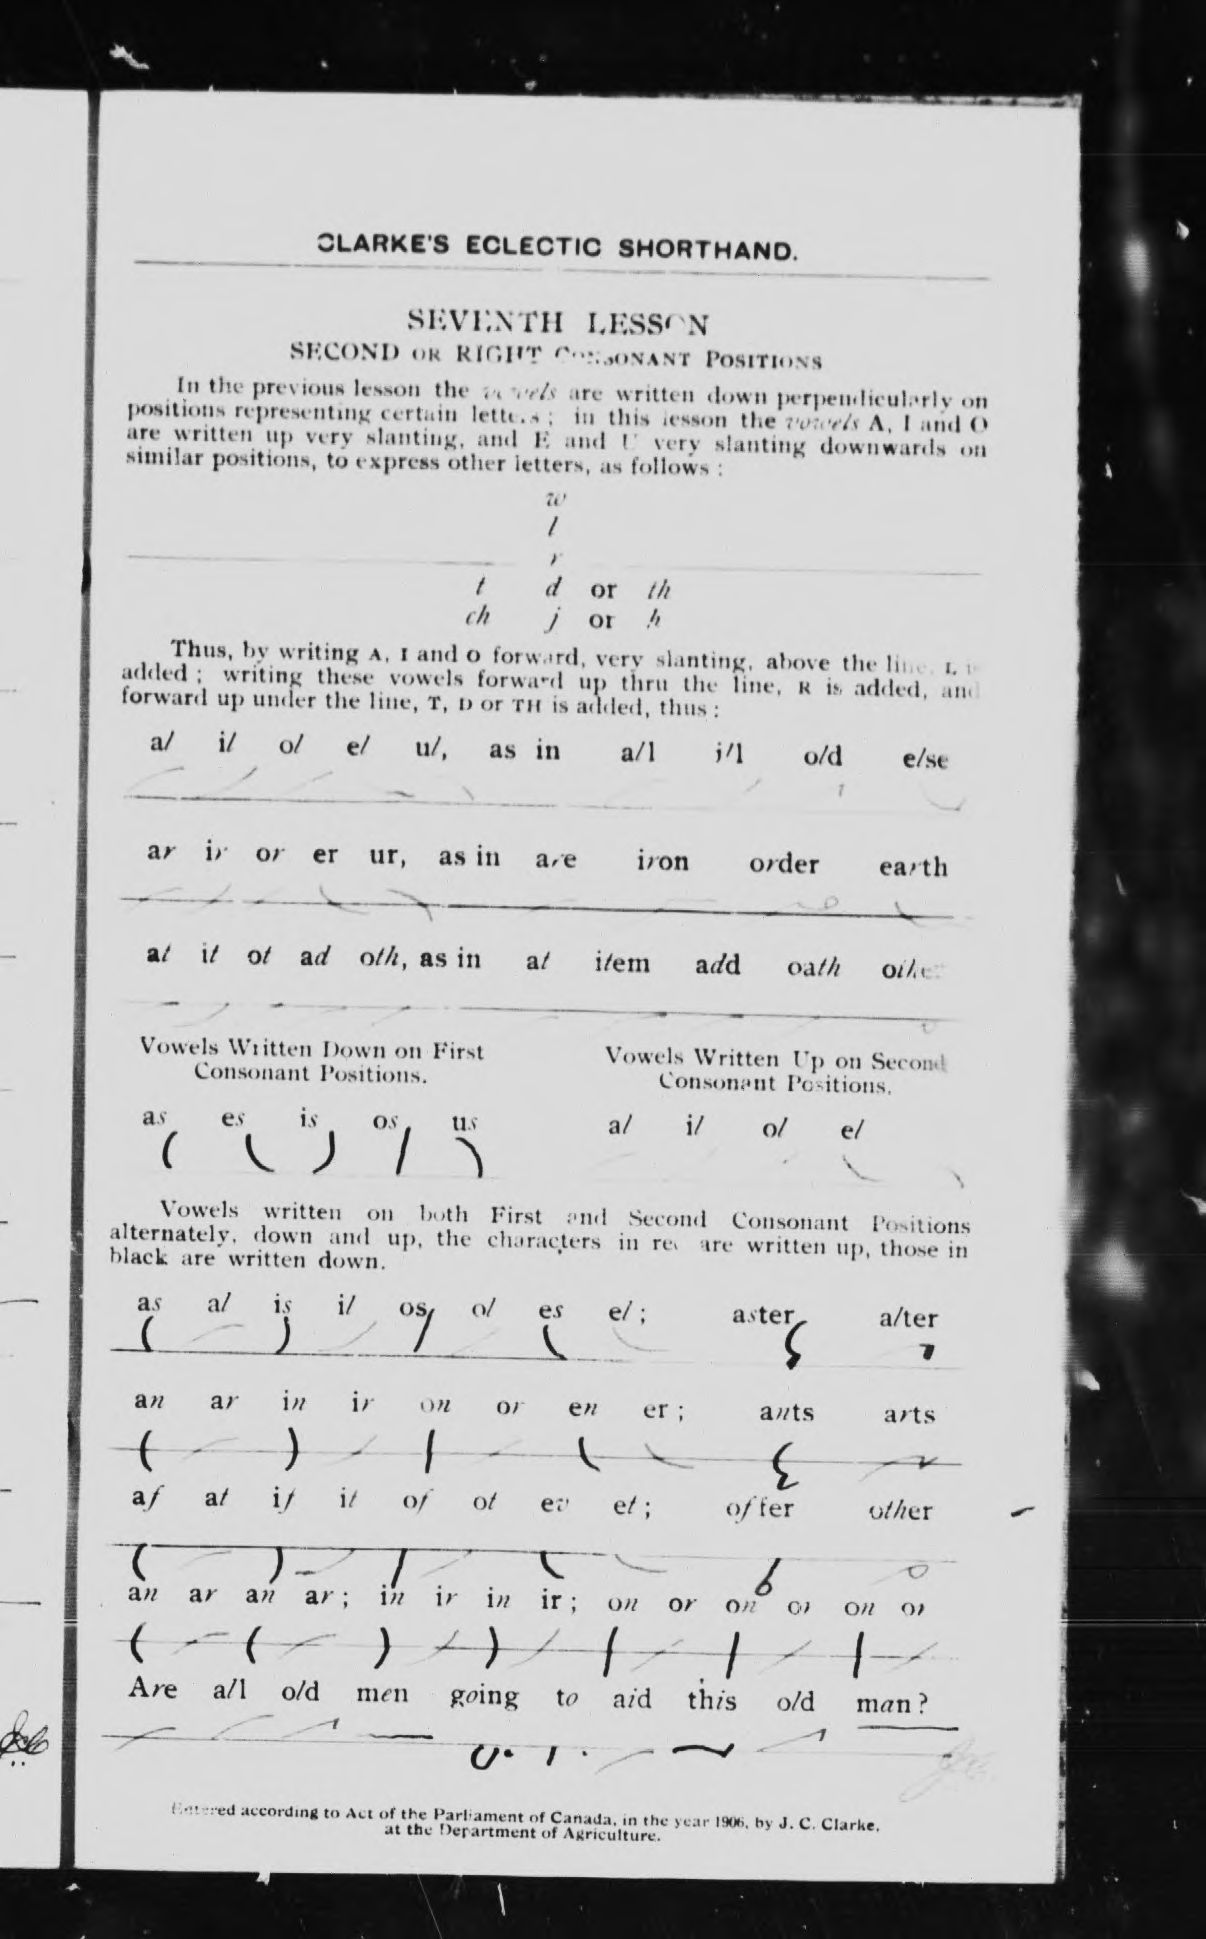 CLARKE'S ECLECTIC SHORTHAND.
SEVENTH LESSON
SECOND OR RIGHT CONSONANT POSITIONS
In the previous lesson the vowels are written down perpendicularly on
positions representing certain letters; in this lesson the vowels A, I and O
are written up very slanting, and E and U very slanting downwards on
similar positions, to express other letters, as follows:
w
l
r
t d or th
ch j or h
Thus, by writing A, I and O forward, very slanting, above the line, L is
added; writing these vowels forward up thru the line, R is added, and
forward up under the line, T, D or TH is added, thus:
al il ol el ul, as in all ill old else
ar ir or er ur, as in are iron order earth
at it ot ad oth, as in at item add oath other
Vowels Written Down on First
Consonant Positions.
Vowels Written Up on Second
Consonant Positions.
as es is os us
al il ol el
Vowels written on both First and Second Consonant Positions
alternately, down and up, the characters in are written up, those in
black are written down.
as al is il os ol es el; aster alter
an ar in ir on or en er; ants arts
af at if it of ot ev et; offer other
an ar an ar; in ir in ir; on or on or on or
Are all old men going to aid this old man?
Entered according to Act of the Parliament of Canada, in the year 1906, by J. C. Clarke,
at the Department of Agriculture.